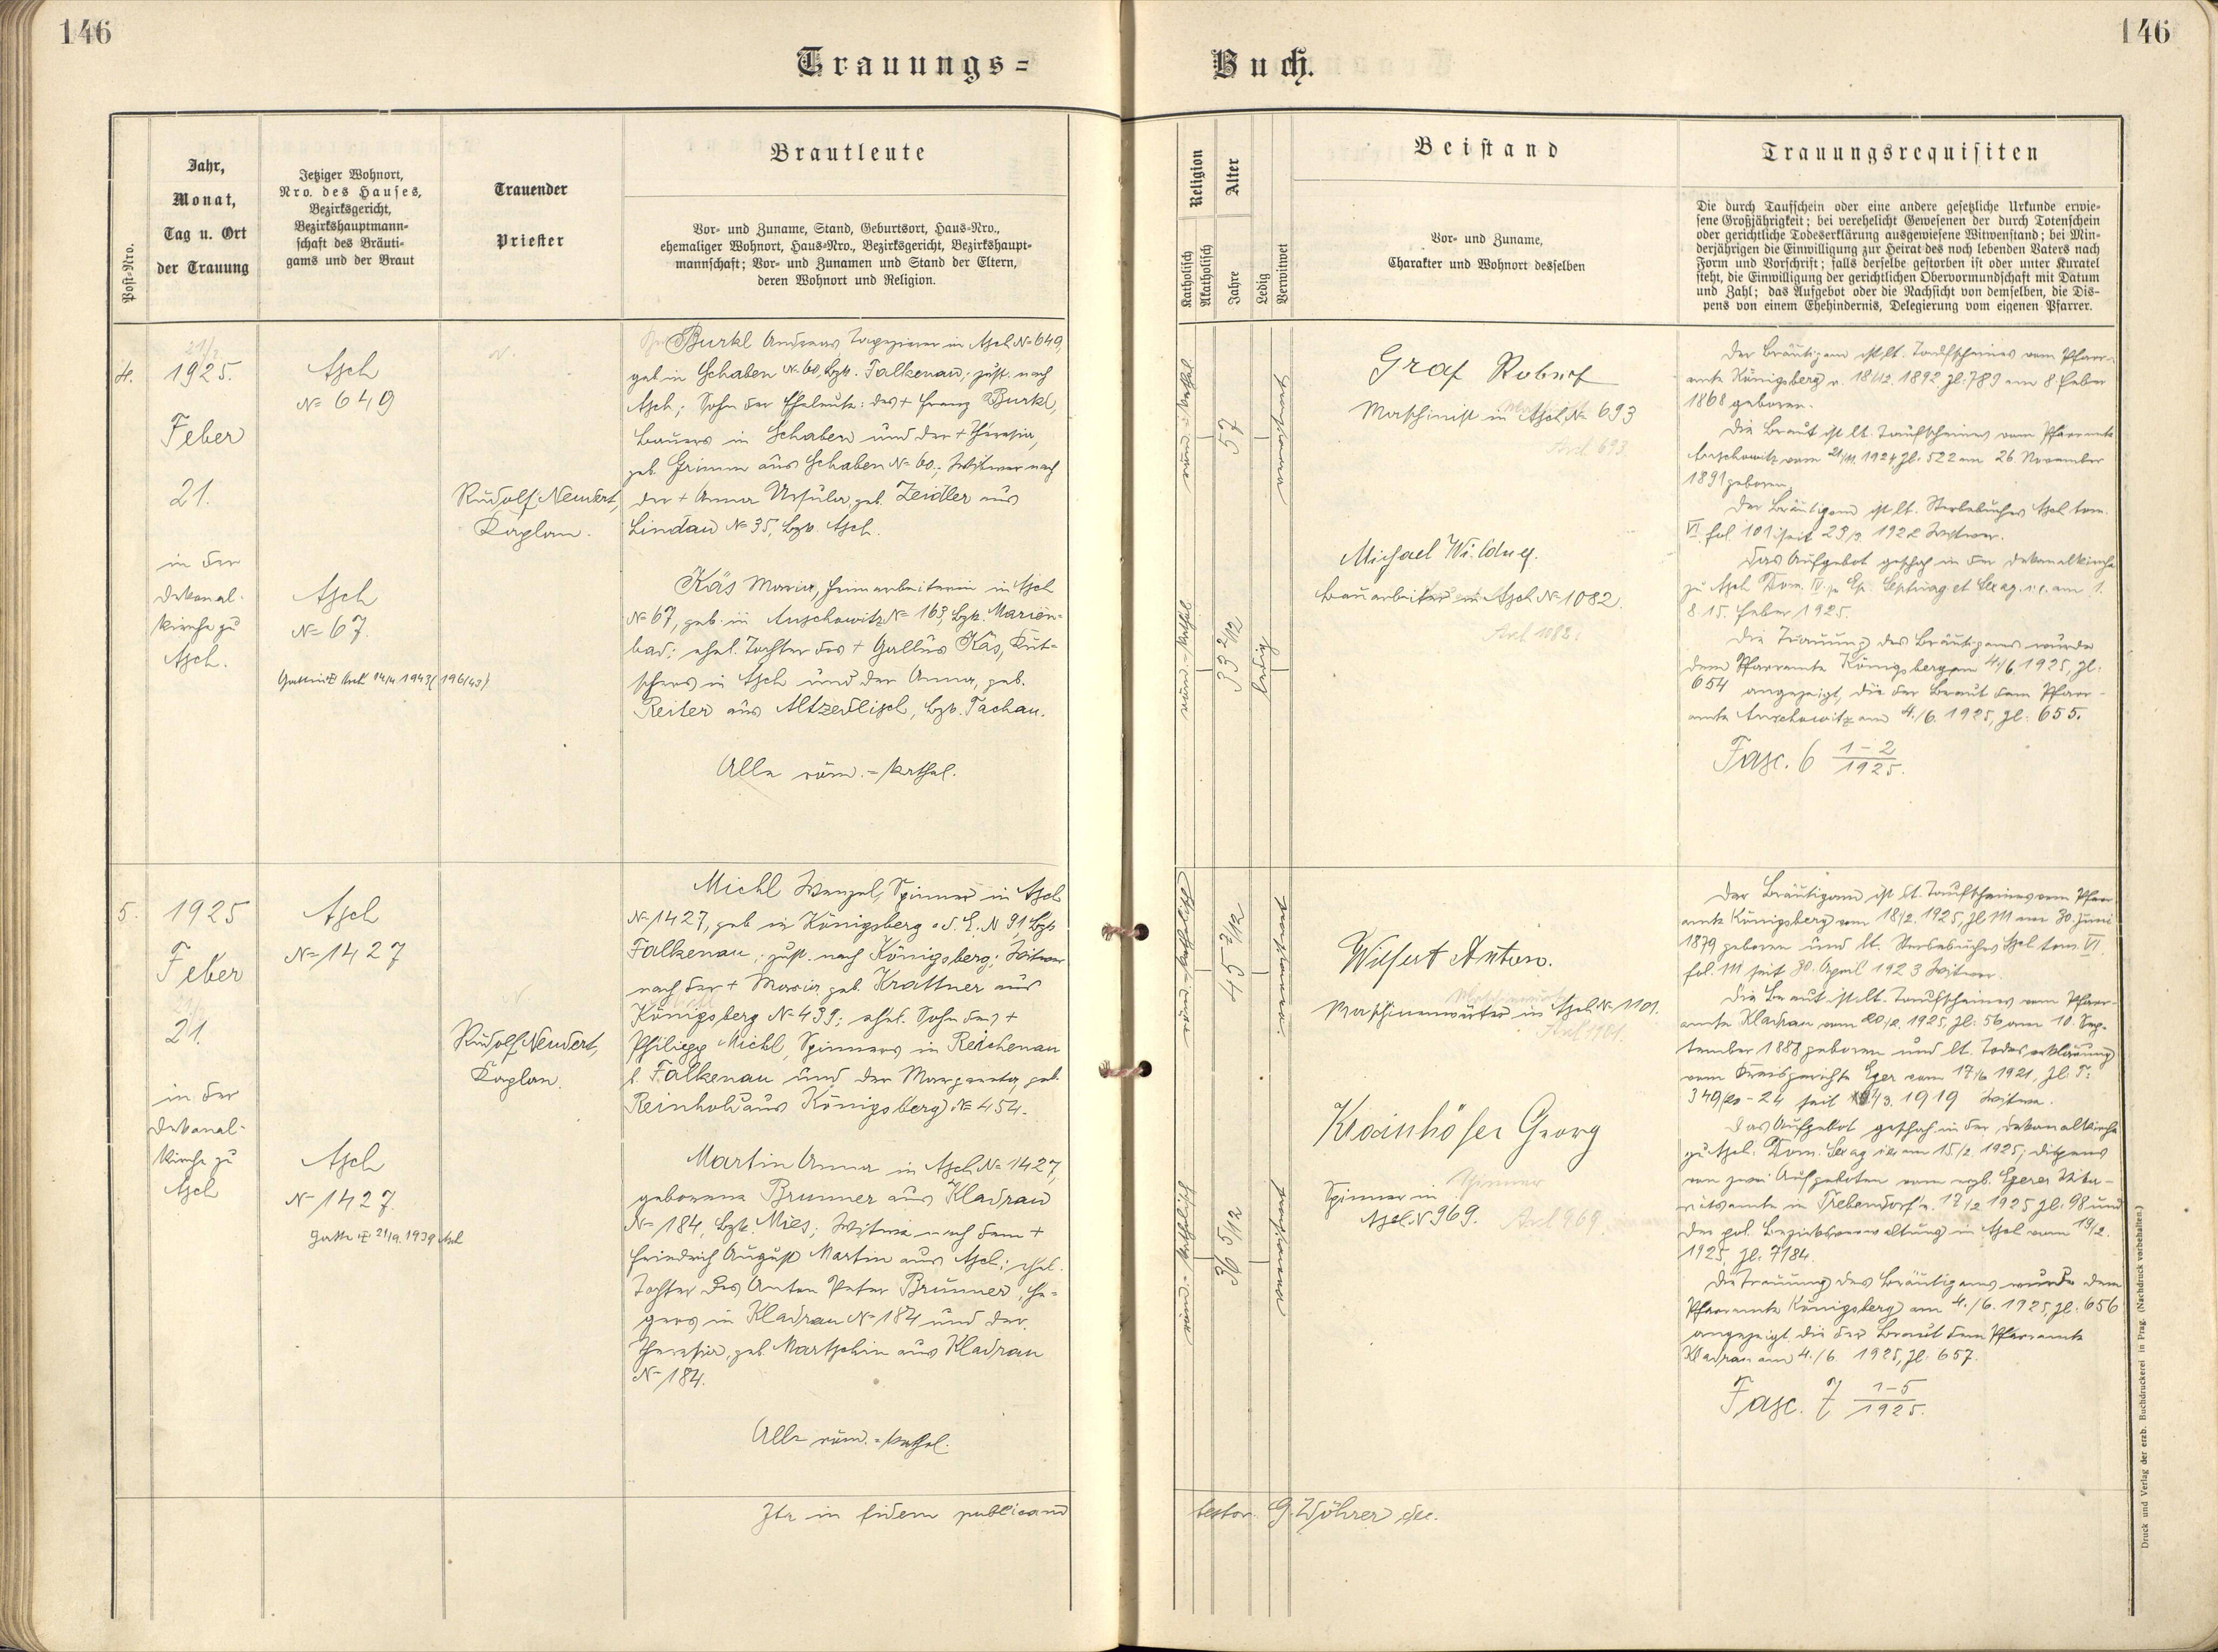 146
146
Trauungs=
Buch.
Post-Nro.
Jahr,
Monat,
Tag u. Ort
der Trauung
Jetziger Wohnort,
Nro. des Hauses,
Bezirksgericht,
Bezirkshauptmann-
schaft des Bräuti-
gams und der Braut
Trauender
Priester
Brautleute
Vor- und Zuname, Stand, Geburtsort, Haus-Nro.,
ehemaliger Wohnort, Haus-Nro., Bezirksgericht, Bezirkshaupt-
mannschaft; Vor- und Zunamen und Stand der Eltern,
deren Wohnort und Religion.
Religion
Katholisch
Akatholisch
Alter
Jahre
Ledig
Verwitwet
Beistand
Vor- und Zuname,
Charakter und Wohnort desselben
Trauungsrequisiten
Die durch Taufschein oder eine andere gesetzliche Urkunde erwie-
sene Großjährigkeit; bei verehelicht Gewesenen der durch Totenschein
oder gerichtliche Todeserklärung ausgewiesene Witwenstand; bei Min-
derjährigen die Einwilligung zur Heirat des noch lebenden Vaters nach
Form und Vorschrift; falls derselbe gestorben ist oder unter Kuratel
steht, die Einwilligung der gerichtlichen Obervormundschaft mit Datum
und Zahl; das Aufgebot oder die Nachsicht von demselben, die Dis-
pens von einem Ehehindernis, Delegierung vom eigenen Pfarrer.
4.
21/2.
1925.
Feber
21.
in der
Dekanal-
kirche zu
Asch.
Asch
№ 649
Asch
№ 67.
Gattin Asch 14/4 1943 (196/43)
Rudolf Neudert,
Kaplan.
Burkl Andreas Tapezierer in Asch № 649,
geb. in Schaben № 60, Bzk. Falkenau, zust. nach
Asch; Sohn der Eheleute: des + Franz Burkl,
Bauers in Schaben und der + Theresia,
geb. Grimm aus Schaben № 60; Witwer nach
der + Anna Ursula geb. Zeidler aus
Lindau № 35, Bzk. Asch.
Käs Maria, Heimarbeiterin in Asch
№ 67, geb. in Auschowitz № 163, Bzk. Marien-
bad; ehel. Tochter des + Gallus Käs, Kut-
schers in Asch und der Anna, geb.
Reiter aus Altzedlisch, Bzk. Tachau.
Alle röm.=kathol.
röm.=kathol.
57
verwitwet
röm.=kathol.
33 2/12
ledig
Graf Robert
Maschinist in Asch № 693
Asch 693.
Michael Wildner.
Bauarbeiter in Asch № 1082.
Asch 1082.
Der Bräutigam ist lt. Taufscheines vom Pfarr-
amte Königsberg v. 18/12. 1892 Zl: 789 am 8. Feber
1868 geboren.
Die Braut ist lt. Taufscheines vom Pfarramte
Auschowitz vom 21/11. 1924, Zl: 522 am 26. November
1891 geboren.
Der Bräutigam ist lt. Sterbebuches Asch tom.
VI. fol. 101 seit 29/3. 1922 Witwer.
Das Aufgebot geschah in der Dekanalkirche
zu Asch Dom. IV. p. Ep. Septuag. et Sexag. i. e. am 1.
8. 15. Feber 1925.
Die Trauung des Bräutigams wurde
dem Pfarramte Königsberg am 4./6. 1925, Zl:
654 angezeigt, die der Braut dem Pfarr-
amte Auschowitz am 4./6. 1925, Zl: 655.
Fasc. 6 1-2/1925.
5.
1925
Feber
21.
in der
Dekanal-
kirche zu
Asch
Asch
№ 1427
Asch
№ 1427.
Gatte 21/9. 1939 Asch
Rudolf Neudert,
Kaplan.
Michl Wenzel, Spinner in Asch
№ 1427, geb. in Königsberg a. d. E. № 91, Bzk.
Falkenau, zust. nach Königsberg; Witwer
nach der + Maria geb. Krattner aus
Königsberg № 439; ehel. Sohn des +
Philipp Michl, Spinners in Reichenau
b. Falkenau und der Margareta, geb.
Reinhold aus Königsberg № 454.
Martin Anna in Asch № 1427,
geborene Brunner aus Kladrau
№ 184, Bzk. Mies; Witwe nach dem +
Friedrich August Martin aus Asch; ehel.
Tochter des Anton Peter Brunner, He-
gers in Kladrau № 184 und der
Theresia, geb. Martschin aus Kladrau
№ 184.
Alle röm.=kathol.
röm.=katholisch
45 7/12
verwitwet
röm.=katholisch
36 5/12
verwitwet
Wilfert Anton.
Maschinenwärter in Asch № 1101.
Asch 1101.
Krainhöfer Georg
Spinner
Spinner in
Asch № 969.
Asch 969.
Der Bräutigam ist lt. Taufscheines vom Pfarr-
amte Königsberg vom 18/2. 1925, Zl: 111 am 30. Juni
1879 geboren und lt. Sterbebuches Asch tom. VI.
fol. 111 seit 30. April 1923 Witwer.
Die Braut ist lt. Taufscheines vom Pfarr-
amte Kladrau vom 20/2. 1925, Zl: 56 am 10. Sep-
tember 1888 geboren und lt. Todeserklärung
vom Kreisgerichte Eger vom 17/6 1921, Zl: T:
349/20-24 seit 1919 Witwe.
Das Aufgebot geschah in der Dekanalkirche
zu Asch: Dom. Sexag. i. e. am 15./2. 1925; dispens
von zwei Aufgeboten vom erzb. Egerer Vika-
riatsamte in Trebendorf v. 17/2 1925 Zl: 98 und
der pol. Bezirksverwaltung in Asch vom 19/2.
1925, Zl: 7184.
Die Trauung des Bräutigams wurde dem
Pfarramte Königsberg am 4./6. 1925, Zl: 656
angezeigt, die der Braut dem Pfarramte
Kladrau am 4./6. 1925, Zl: 657.
Fasc. 7 1-5/1925.
Ita in fidem publicam
testor. G. Wöhrer dec.
Druck und Verlag der erzb. Buchdruckerei in Prag. (Nachdruck vorbehalten.)